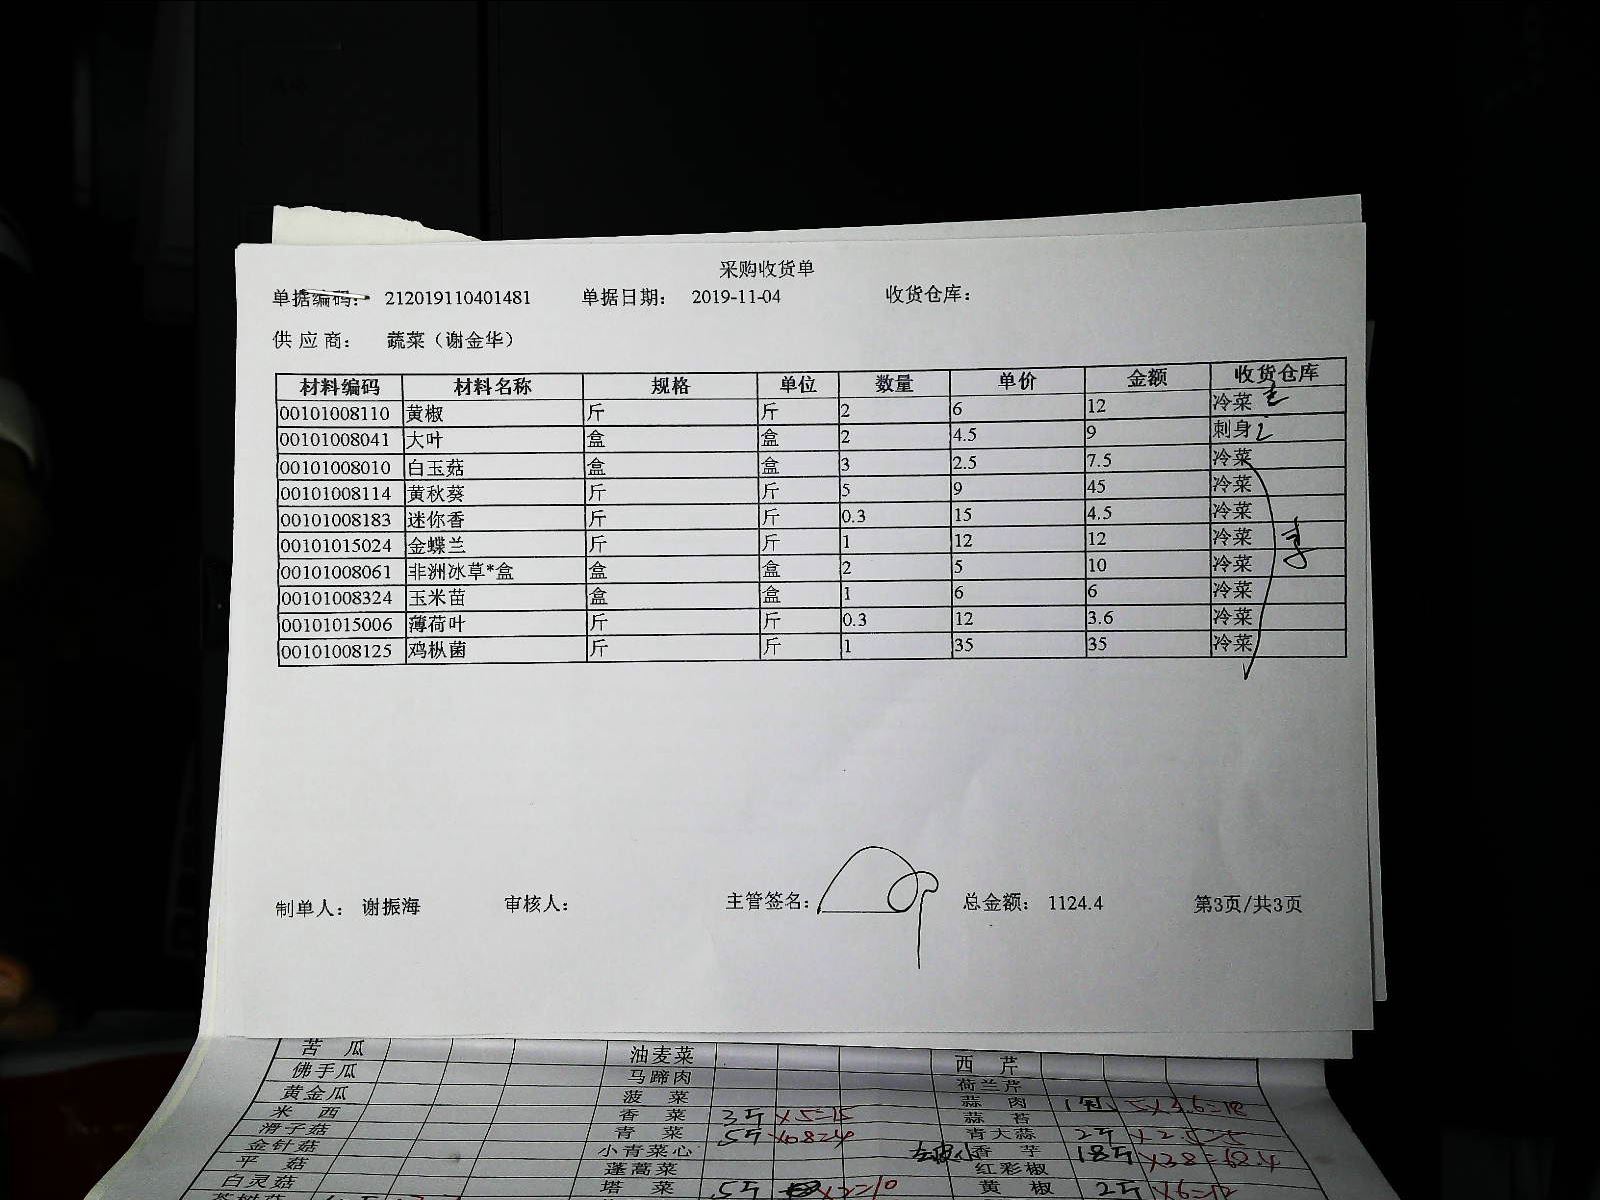 采购收货单
单据编码: 212019110401481 单据日期: 2019-11-04 收货仓库:
供 应 商: 蔬菜（谢金华）
材料编码 材料名称 规格 单位 数量 单价 金额 收货仓库
00101008110 黄椒 斤 斤 2 6 12 冷菜
00101008041 大叶 盒 盒 2 4.5 9 刺身
00101008010 白玉菇 盒 盒 3 2.5 7.5 冷菜
00101008114 黄秋葵 斤 斤 5 9 45 冷菜
00101008183 迷你香 斤 斤 0.3 15 4.5 冷菜
00101015024 金蝶兰 斤 斤 1 12 12 冷菜
00101008061 非洲冰草*盒 盒 盒 2 5 10 冷菜
00101008324 玉米苗 盒 盒 1 6 6 冷菜
00101015006 薄荷叶 斤 斤 0.3 12 3.6 冷菜
00101008125 鸡枞菌 斤 斤 1 35 35 冷菜
制单人: 谢振海 审核人: 主管签名: 总金额: 1124.4 第3页/共3页
苦 瓜 油麦菜 西 芹
佛手瓜 马蹄肉 荷兰芹
黄金瓜 菠 菜 蒜 肉 5×3.6=18
米 西 香 菜 3斤 ×5=15 蒜 苔
滑子菇 青 菜 5斤 ×0.8=4 青大蒜 2斤 ×2.5=5
金针菇 小青菜心 香 芋 18斤 ×3.8=68.4
平 菇 蓬蒿菜 红彩椒
白灵菇 塔 菜 5斤 ×2=10 黄 椒 2斤 ×6=12
茶树菇